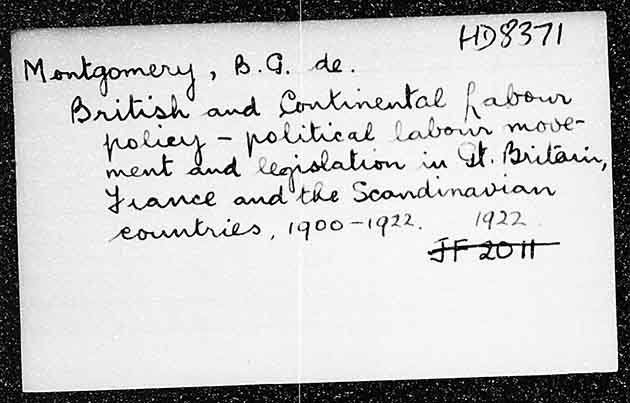 HD8371
Montgomery, B. G. de.
British and Continental Labour
policy - political labour move-
ment and legislation in Gt. Britain,
France and the Scandinavian
countries, 1900-1922. 1922
JF 2011